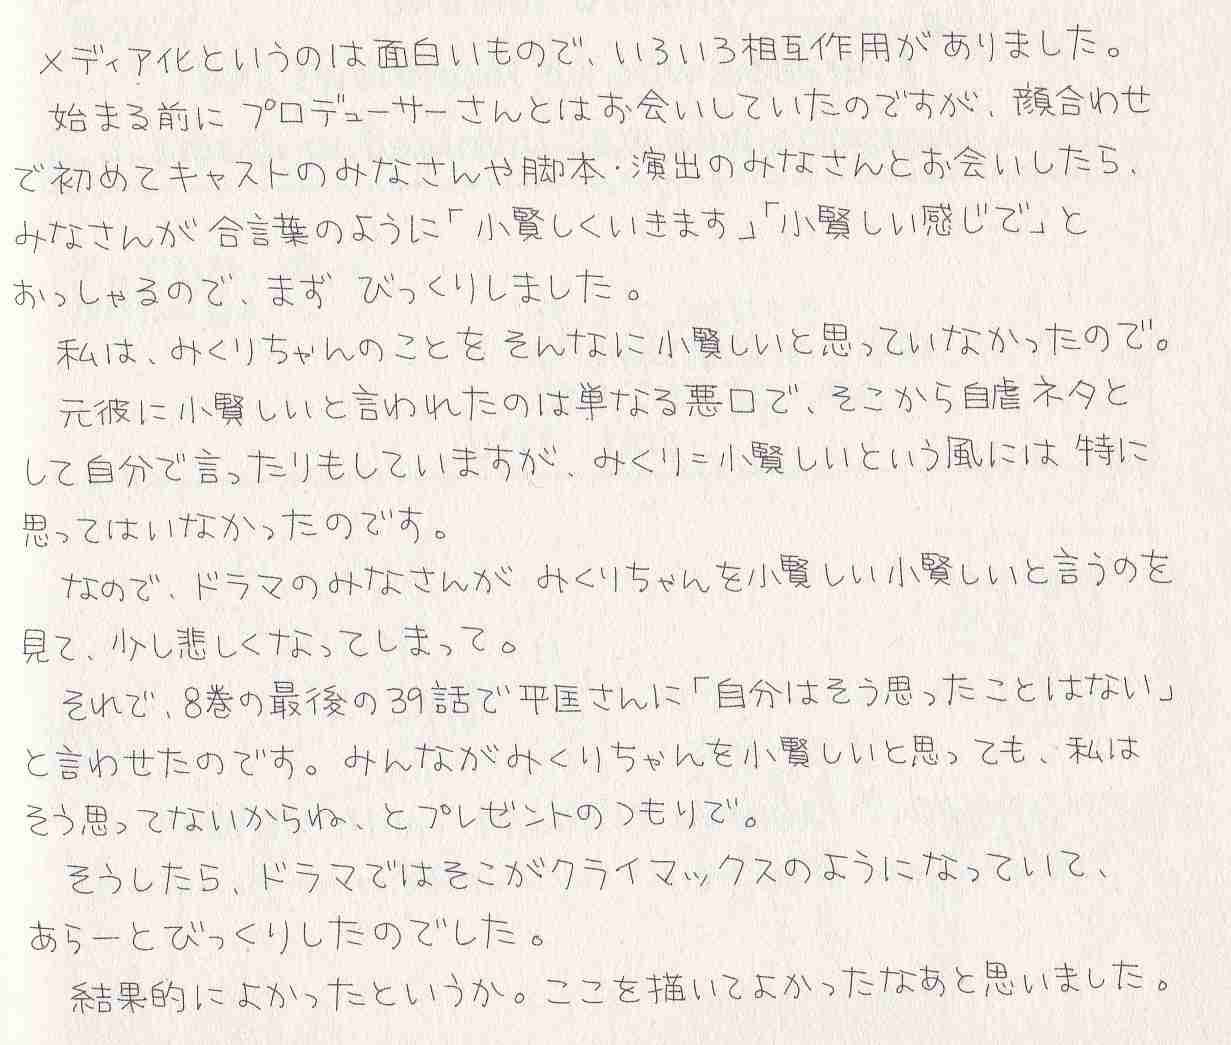 メディア化というのは面白いもので、いろいろ相互作用がありました。
始まる前にプロデューサーさんとはお会いしていたのですが、顔合わせ
で初めてキャストのみなさんや脚本・演出のみなさんとお会いしたら、
みなさんが合言葉のように「小賢しくいきます」「小賢しい感じで」と
おっしゃるので、まず びっくりしました。
私は、みくりちゃんのことをそんなに小賢しいと思っていなかったので。
元彼に小賢しいと言われたのは単なる悪口で、そこから自虐ネタと
して自分で言ったりもしていますが、みくり=小賢しいという風には特に
思ってはいなかったのです。
なので、ドラマのみなさんが みくりちゃんを小賢しい小賢しいと言うのを
見て、少し悲しくなってしまって。
それで、8巻の最後の39話で平匡さんに「自分はそう思ったことはない」
と言わせたのです。みんながみくりちゃんを小賢しいと思っても、私は
そう思ってないからね、とプレゼントのつもりで。
そうしたら、ドラマではそこがクライマックスのようになっていて、
あらーとびっくりしたのでした。
結果的によかったというか。ここを描いてよかったなあと思いました。